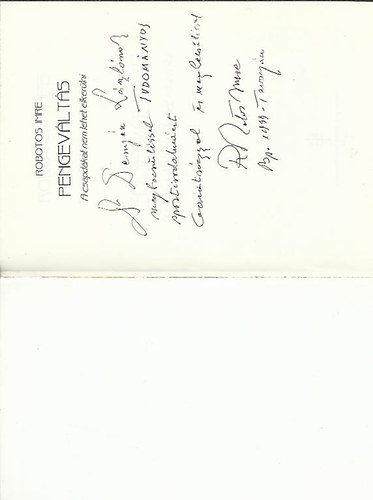 ROBOTOS IMRE
PENGEVÁLTÁS
A csapdákat nem lehet elkerülni
Dr Demján Lászlónak
megbecsüléssel TUDOMÁNYOS
sportirodalmáért
barátsággal és megbecsüléssel
Robotos Imre
Bp. 1999